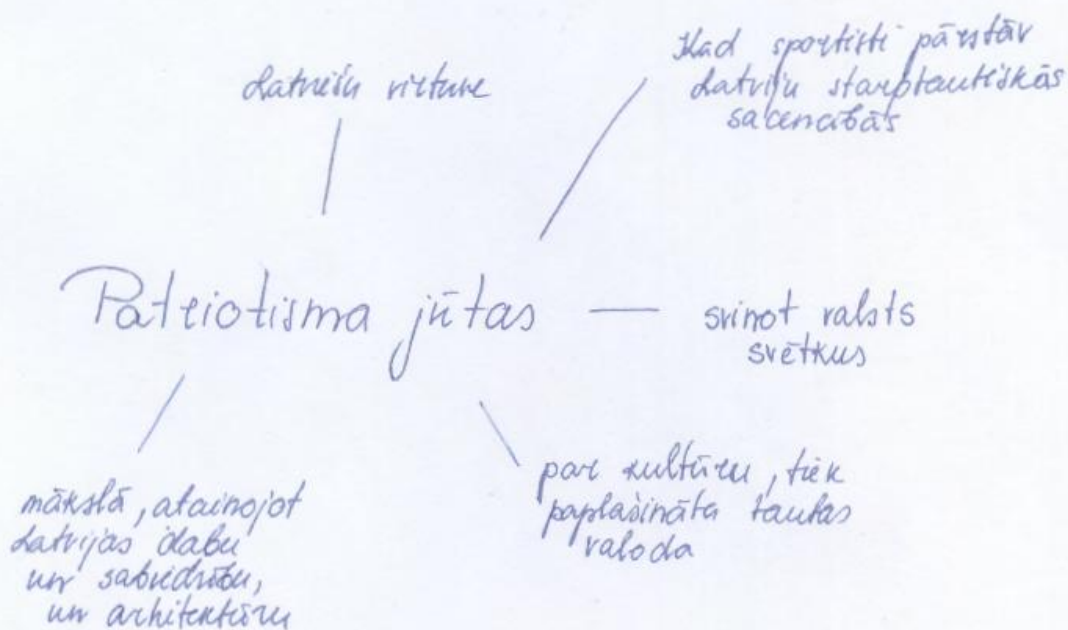 Latviešu virtuve
Kad sportisti pārstāv
Latviju starptautiskās
sacensībās
Patriotisma jūtas
svinot valsts
svētkus
mākslā, atainojot
Latvijas dabu
un sabiedrību,
un arhitektūru
par kultūru, tiek
paplašināta tautas
valoda